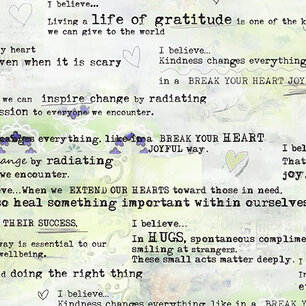 I believe...
Living a life of gratitude is one of the k
we can give to the world
y heart
ven when it is scary
I believe...
Kindness changes everything
in a BREAK YOUR HEART JOY
we can inspire change by radiating
ssion to everyone we encounter.
changes everything, like in a BREAK YOUR HEART
JOYFUL way.
ange by radiating
we encounter.
I bel
That
joy.
eve...When we EXTEND OUR HEARTS toward those in need,
so heal something important within ourselves
THEIR SUCCESS,
way is essential to our
wellbeing.
I believe...
In HUGS, spontaneous complime
smiling at strangers.
These small acts matter deeply. I
d doing the right thing
I believe...
Kindness changes everything like in a BREA